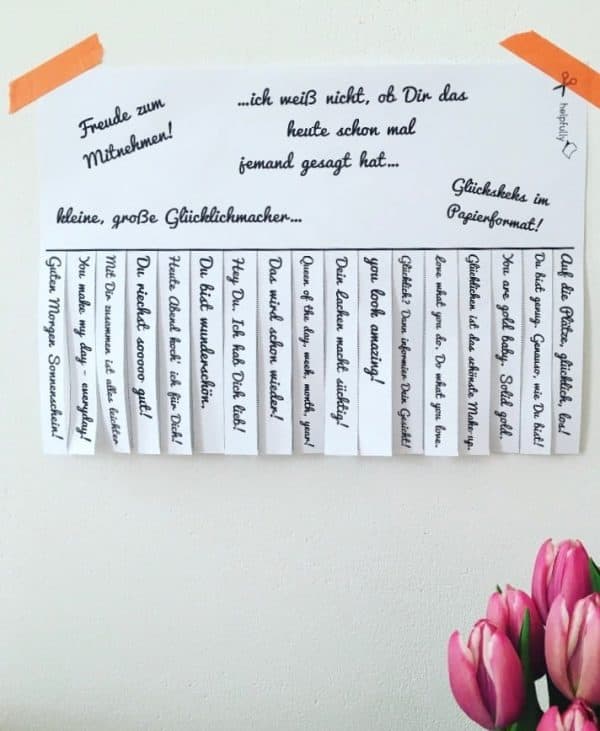 Freude zum
Mitnehmen!
...ich weiß nicht, ob Dir das
heute schon mal
jemand gesagt hat...
helpfully
Glückskeks im
Papierformat!
kleine, große Glücklichmacher...
Guten Morgen Sonnenschein!
You make my day - everyday!
Mit Dir zusammen ist alles leichter
Du riechst sooooo gut!
Heute Abend koch' ich für Dich!
Du bist wunderschön.
Hey Du. Ich hab Dich lieb!
Das wird schon wieder!
Queen of the day, week, month, year!
Dein Lachen macht süchtig!
you look amazing!
Glücklich? Dann informier Dein Gesicht!
Love what you do, Do what you love.
Glücklichsein ist das schönste Make-up.
You are gold baby. Solid gold.
Du bist genug. Genauso, wie Du bist!
Auf die Plätze, glücklich, los!